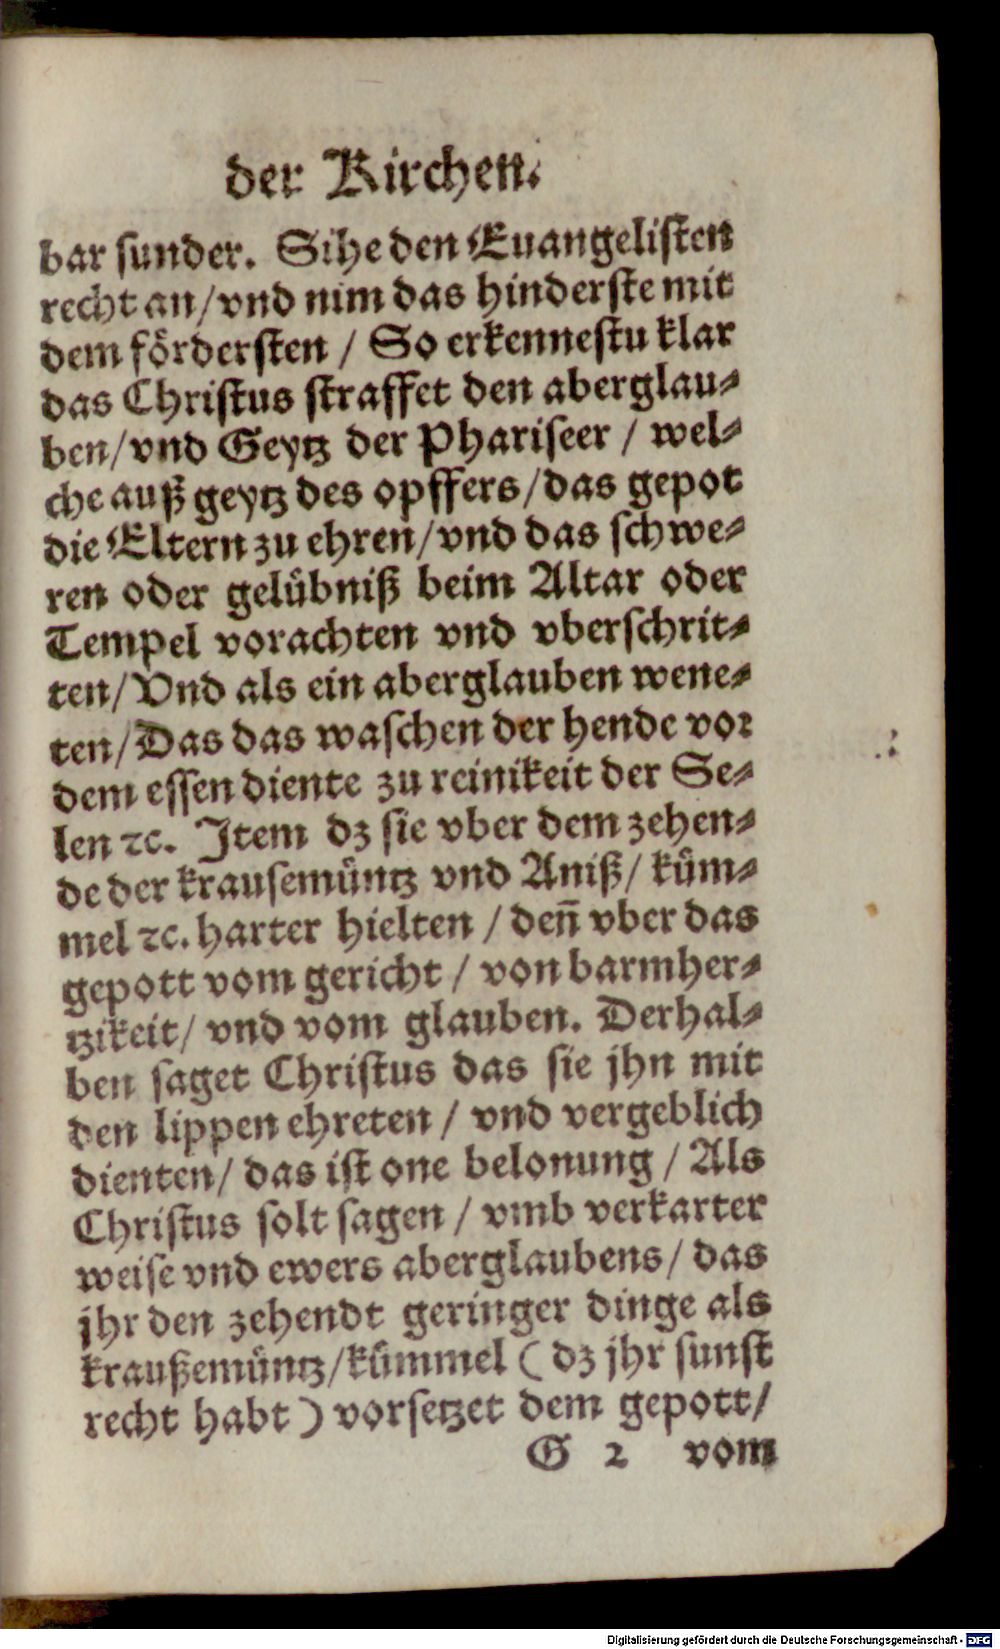 der Kirchen.
bar sunder. Sihe den Euangelisten
recht an/vnd nim das hinderste mit
dem fördersten / So erkennestu klar
das Christus straffet den aberglau⸗
ben/vnd Geytz der Phariseer / wel⸗
che auß geytz des opffers/das gepot
die Eltern zu ehren/vnd das schwe⸗
ren oder gelübniß beim Altar oder
Tempel vorachten vnd vberschrit⸗
ten/Vnd als ein aberglauben wene⸗
ten/Das das waschen der hende vor
dem essen diente zu reinikeit der Se⸗
len ꝛc. Item dz sie vber dem zehen⸗
de der krausemüntz vnd Aniß/ küm⸗
mel ꝛc. harter hielten / den̄ vber das
gepott vom gericht / von barmher⸗
tzikeit/ vnd vom glauben. Derhal⸗
ben saget Christus das sie jhn mit
den lippen ehreten / vnd vergeblich
dienten/ das ist one belonung / Als
Christus solt sagen / vmb verkarter
weise vnd ewers aberglaubens/ das
jhr den zehendt geringer dinge als
kraußemüntz/kümmel ( dz jhr sunst
recht habt ) vorsetzet dem gepott/
G 2 vom
Digitalisierung gefördert durch die Deutsche Forschungsgemeinschaft - DFG